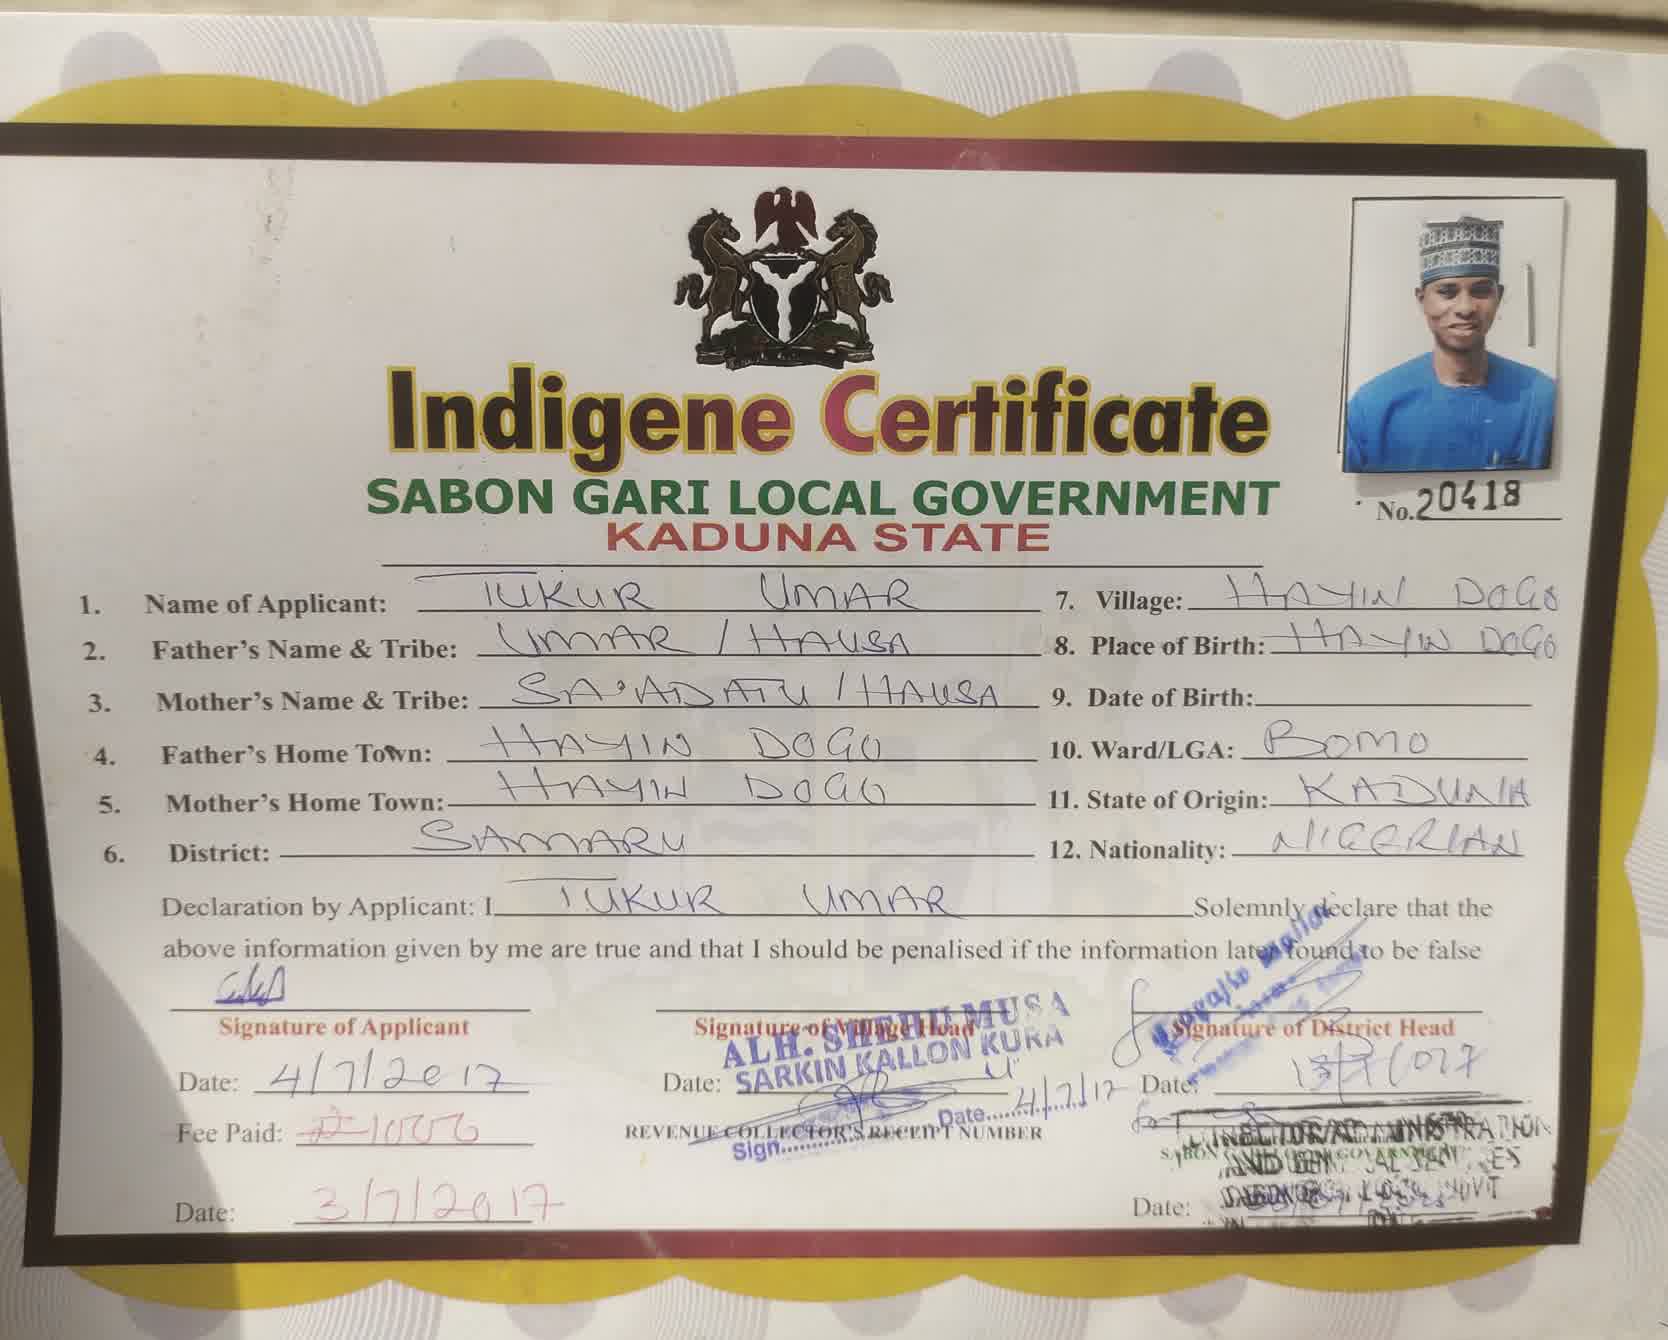 Indigene Certificate
SABON GARI LOCAL GOVERNMENT
KADUNA STATE
No. 20418
1. Name of Applicant: TUKUR UMAR
2. Father's Name & Tribe: UMAR / HAUSA
3. Mother's Name & Tribe: SA'ADATU / HAUSA
4. Father's Home Town: HAYIN DOGO
5. Mother's Home Town: HAYIN DOGO
6. District: SAMARU
7. Village: HAYIN DOGO
8. Place of Birth: HAYIN DOGO
9. Date of Birth:
10. Ward/LGA: BOMO
11. State of Origin: KADUNA
12. Nationality: NIGERIAN
Declaration by Applicant: I TUKUR UMAR Solemnly declare that the
above information given by me are true and that I should be penalised if the information later found to be false
Signature of Applicant
Signature of Village Head
Signature of District Head
ALH. SHEHU MUSA
SARKIN KALLON KURA
Date: 4/7/2017
Date:
Date:
Sign.......... Date.... 4/7/17
Fee Paid: ₦1000
REVENUE COLLECTOR'S RECEIPT NUMBER
SABON GARI LOCAL GOVERNMENT
Date: 3/7/2017
Date: